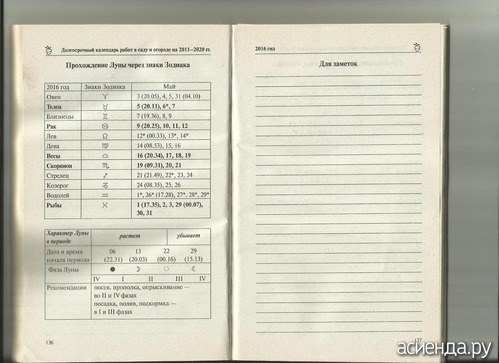 Долгосрочный календарь работ в саду и огороде на 2011—2020 гг.
Прохождение Луны через знаки Зодиака
2016 год Знаки Зодиака Май
Овен ♈ 3 (20.05), 4, 5, 31 (04.10)
Телец ♉ 5 (20.11), 6*, 7
Близнецы ♊ 7 (19.36), 8, 9
Рак ♋ 9 (20.25), 10, 11, 12
Лев ♌ 12* (00.33), 13*, 14*
Дева ♍ 14 (08.53), 15, 16
Весы ♎ 16 (20.34), 17, 18, 19
Скорпион ♏ 19 (09.31), 20, 21
Стрелец ♐ 21 (21.49), 22*, 23, 24
Козерог ♑ 24 (08.35), 25, 26
Водолей ♒ 1*, 26* (17.28), 27*, 28*, 29*
Рыбы ♓ 1 (17.35), 2, 3, 29 (00.07),
30, 31
Характер Луны
в периоде растет убывает
Дата и время
начала периода 06 13 22 29
(22.31) (20.03) (00.16) (15.13)
Фаза Луны ● ☽ ○ ☾
IV I II III IV
Рекомендации посев, прополка, опрыскивание —
во II и IV фазах
посадка, полив, подкормка —
в I и III фазах
136
2016 год
Для заметок
асиенда.ру